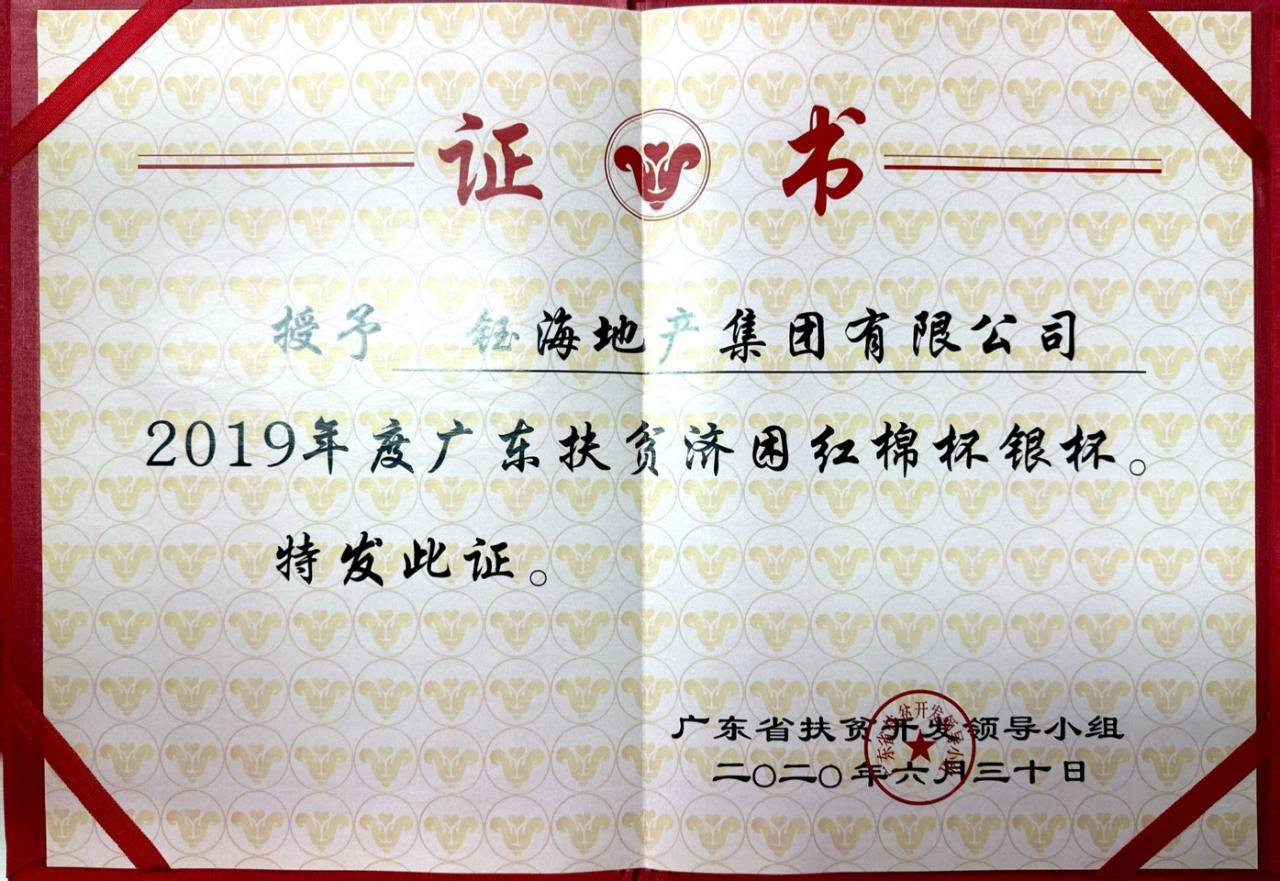 证书
授予 钰海地产集团有限公司
2019年度广东扶贫济困红棉杯银杯。
特发此证。
广东省扶贫开发领导小组
二〇二〇年六月三十日
广东省扶贫开发领导小组